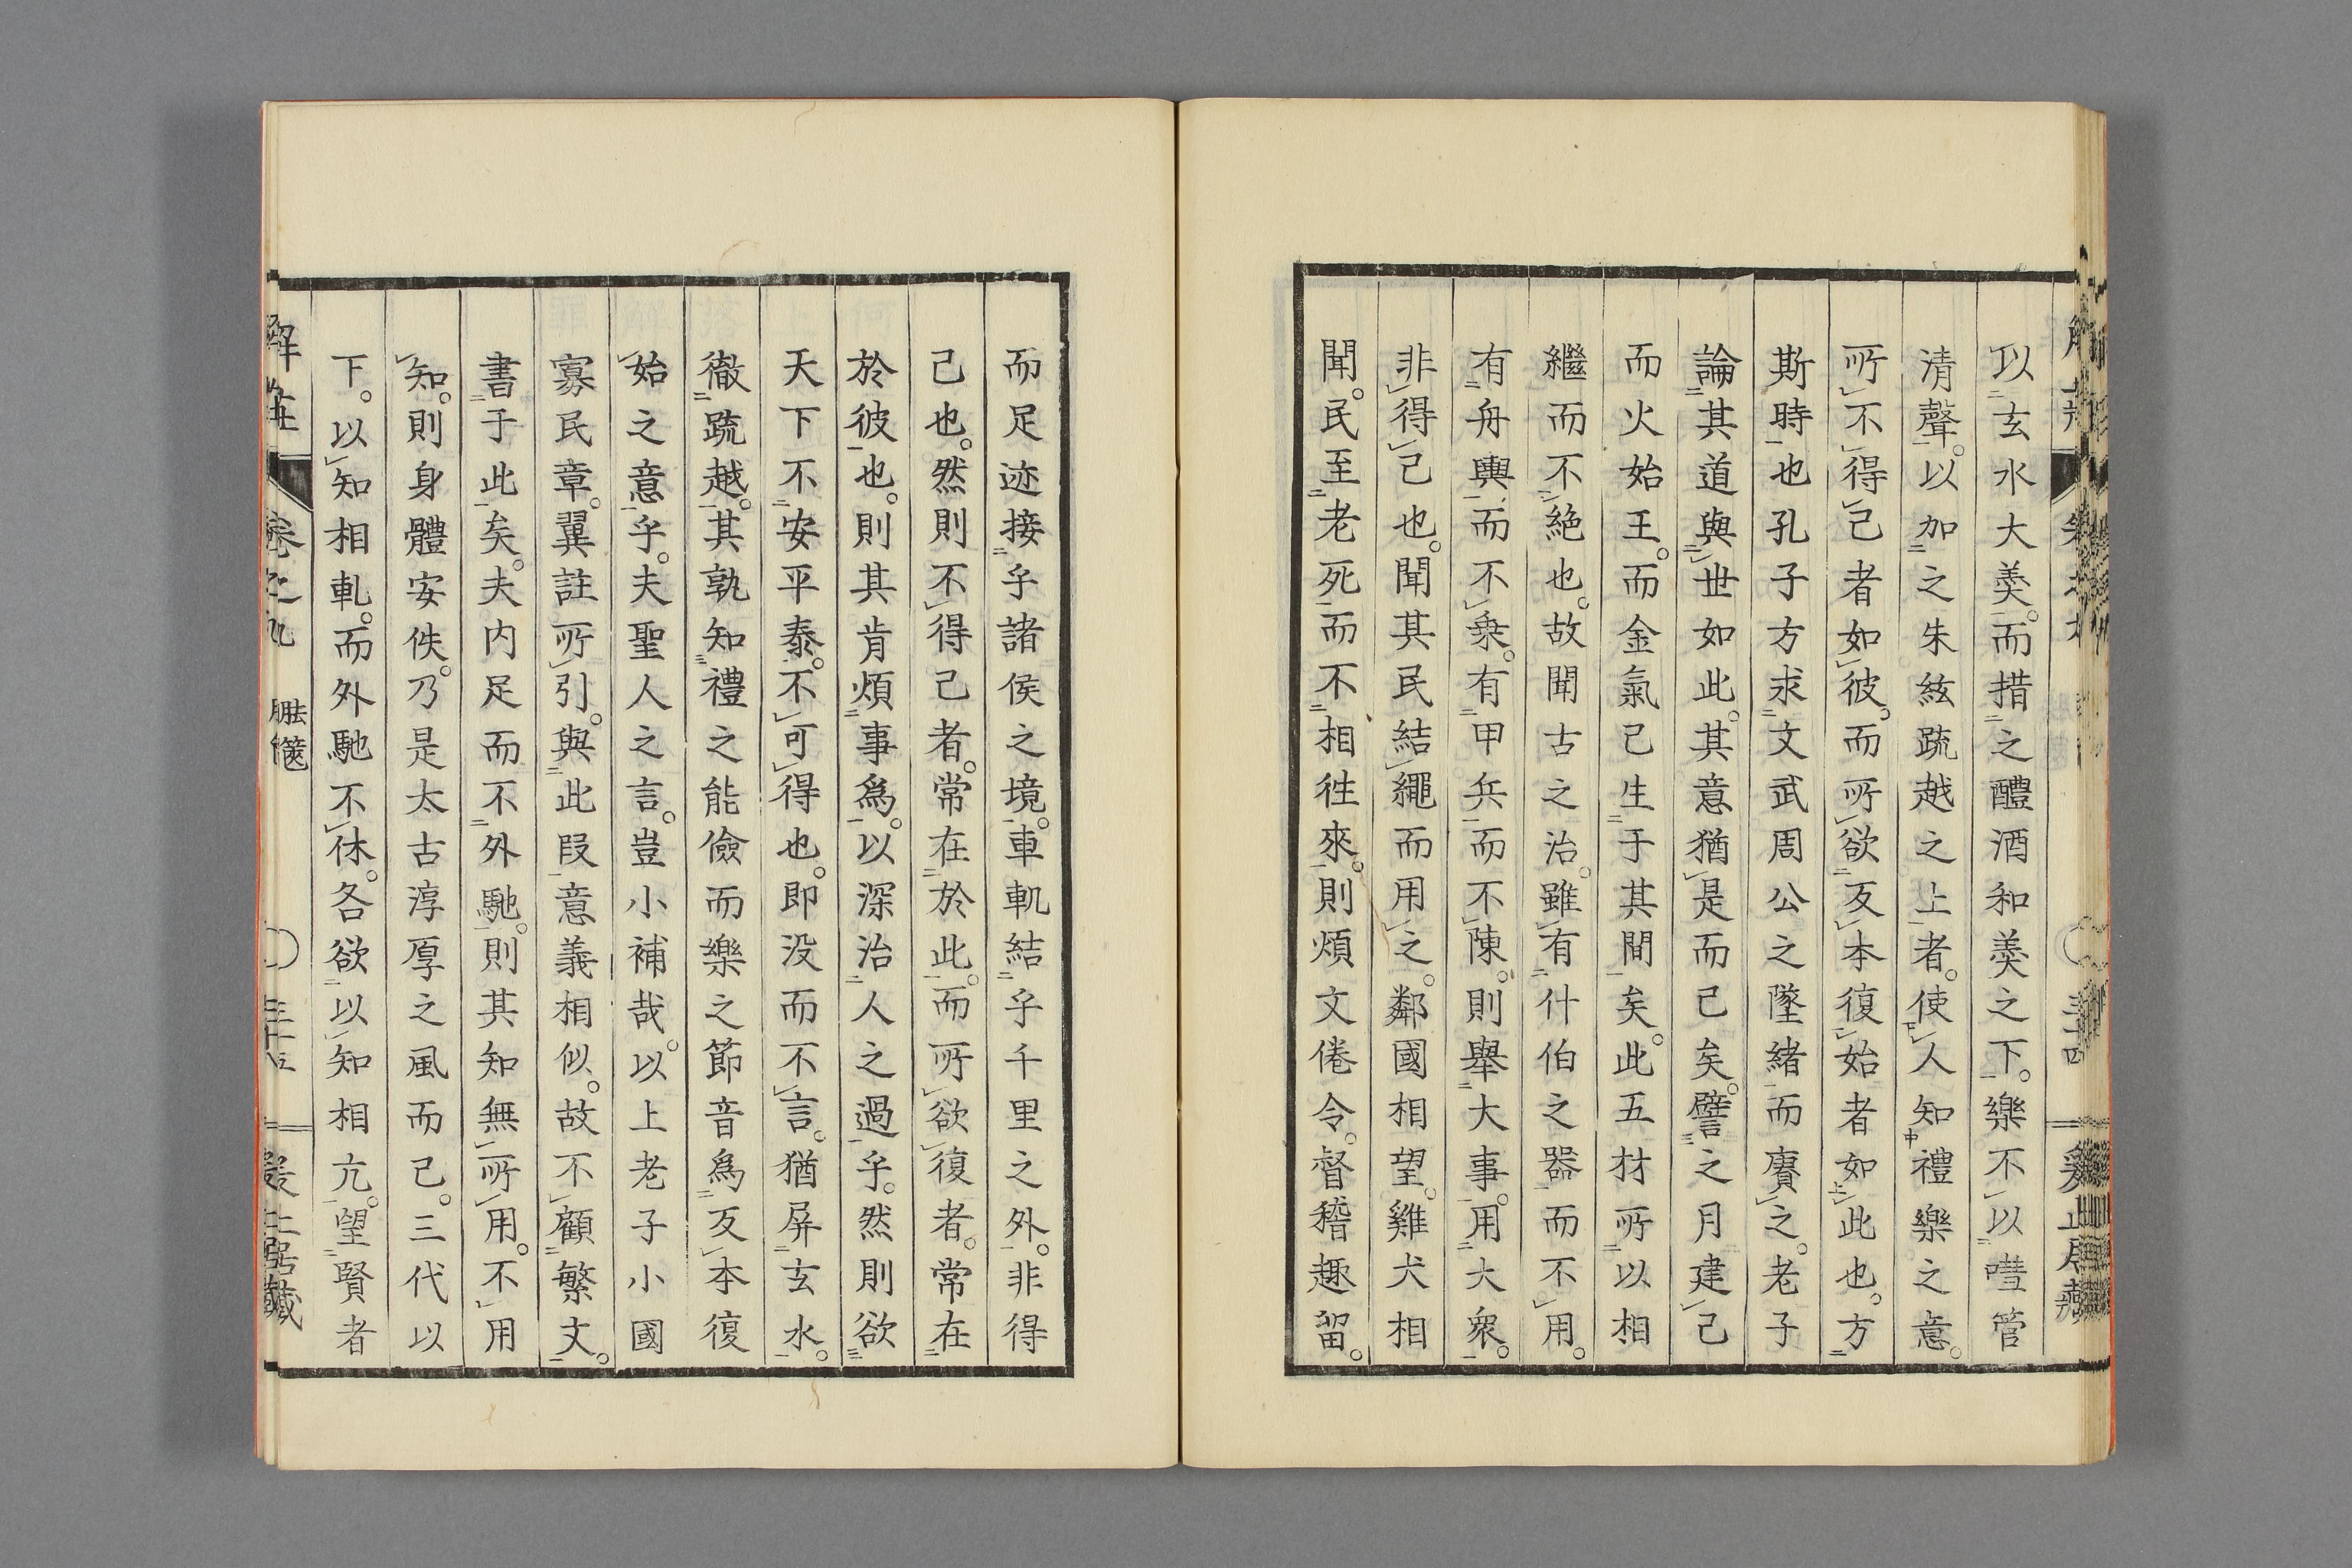 以玄水大羹。而措之醴酒和羹之下。樂不以嘒管
清聲。以加之朱絃疏越之上者。使人知禮樂之意。
所不得已者如彼。而所欲反本復始者如此也。方
斯時也孔子方求文武周公之墜緒而賡之。老子
論其道與世如此。其意猶是而已矣。譬之月建己
而火始王。而金氣已生于其間矣。此五材所以相
繼而不絕也。故聞古之治。雖有什伯之器而不用。
有舟輿而不乘。有甲兵而不陳。則舉大事。用大衆。
非得已也。聞其民結繩而用之。鄰國相望。雞犬相
聞。民至老死而不相往來。則煩文倦令。督稽趣留。
而足迹接乎諸侯之境。車軌結乎千里之外。非得
已也。然則不得已者。常在於此。而所欲復者。常在
於彼也。則其肯煩事為。以深治人之過乎。然則欲
天下不安平泰。不可得也。即没而不言。猶屏玄水。
徹疏越。其孰知禮之能儉而樂之節音爲反本復
始之意乎。夫聖人之言。豈小補哉。以上老子小國
寡民章。翼註所引。與此段意義相似。故不顧繁文。
書于此矣。夫内足而不外馳。則其知無所用。不用
知。則身體安佚。乃是太古淳厚之風而已。三代以
下。以知相軋。而外馳不休。各欲以知相亢。望賢者
解莊 卷之九 胠篋 三十五